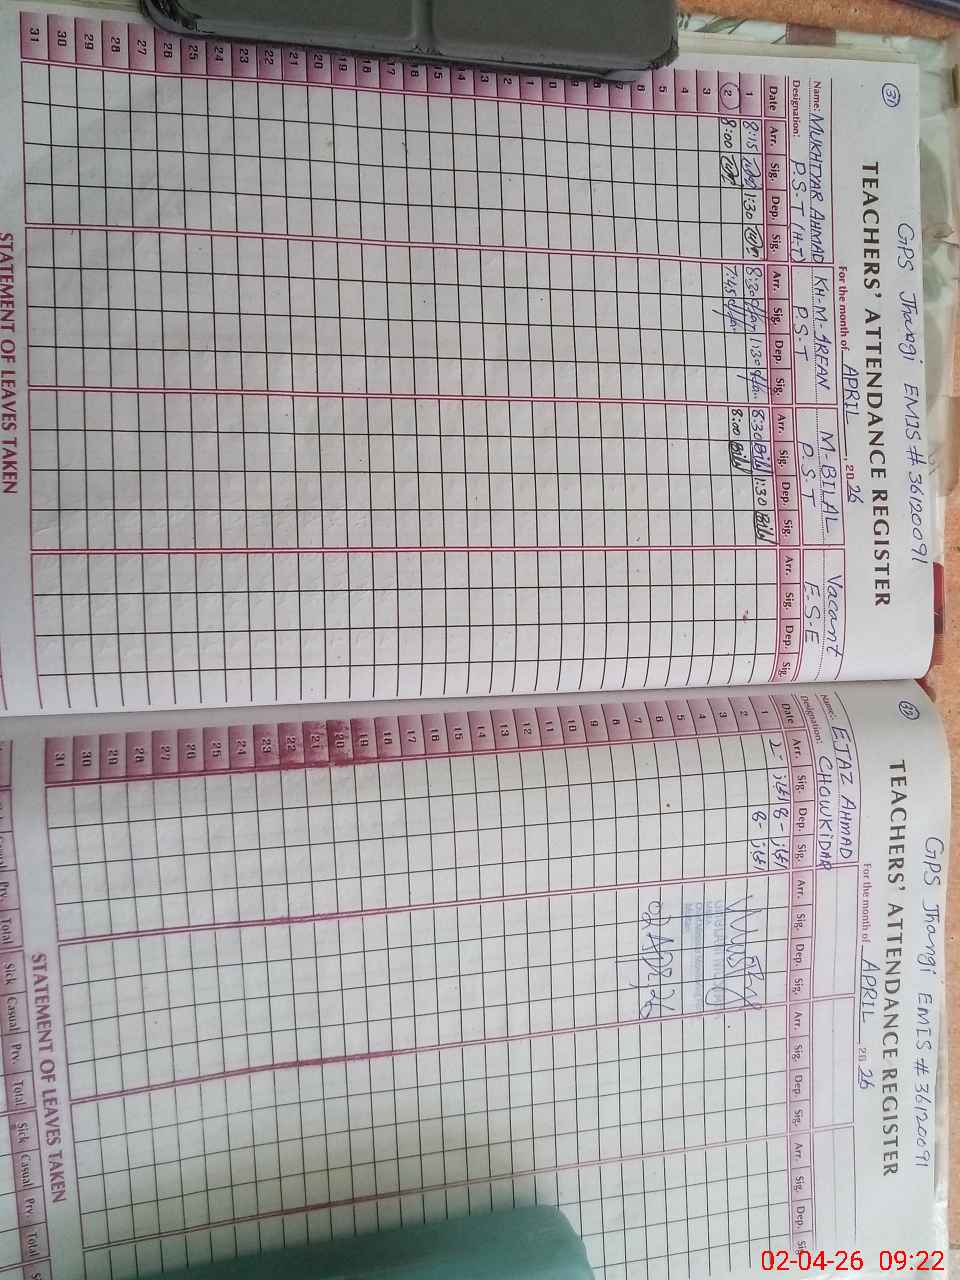 31
GPS Jhangi EMIS # 36120091
TEACHERS' ATTENDANCE REGISTER
For the month of APRIL, 2026
Name: MUKHTYAR AHMAD KH-M-IRFAN M-BILAL Vacant
Designation: P.S.T (H.T) P.S.T P.S.T E-S-E
Date Arr. Sig. Dep. Sig. Arr. Sig. Dep. Sig. Arr. Sig. Dep. Sig. Arr. Sig. Dep. Sig.
1 8:15 1:30 8:30 1:30 8:30 Bilal 1:30 Bilal
2 8:00 7:45 8:00 Bilal
3
4
5
6
7
8
9
10
11
12
13
14
15
16
17
18
19
20
21
22
23
24
25
26
27
28
29
30
31
STATEMENT OF LEAVES TAKEN
GPS Jhangi EMIS # 36120091
TEACHERS' ATTENDANCE REGISTER
For the month of APRIL 2026
Name: EJAZ AHMAD
Designation: CHOWKIDAR
Date Arr. Sig. Dep. Sig. Arr. Sig. Dep. Sig. Arr. Sig. Dep. Sig. Arr. Sig. Dep. Sig.
1 2- اعجاز 8- اعجاز
2 8- اعجاز
3
4
5
6
7
8
9
10
11
12
13
14
15
16
17
18
19
20
21
22
23
24
25
26
27
28
29
30
31
02 APR, 26
STATEMENT OF LEAVES TAKEN
Casual Prv. Total Sick Casual Prv. Total Sick Casual Prv. Total
02-04-26 09:22